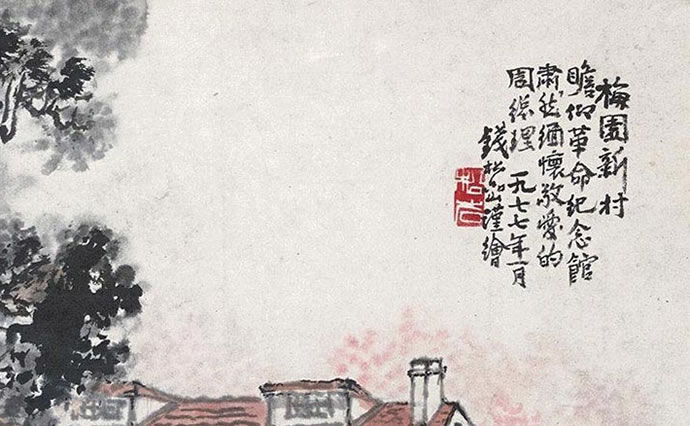 梅園新村
瞻仰革命纪念館
肅然緬懷敬愛的
周總理 一九七七年一月
錢松嵒謹繪